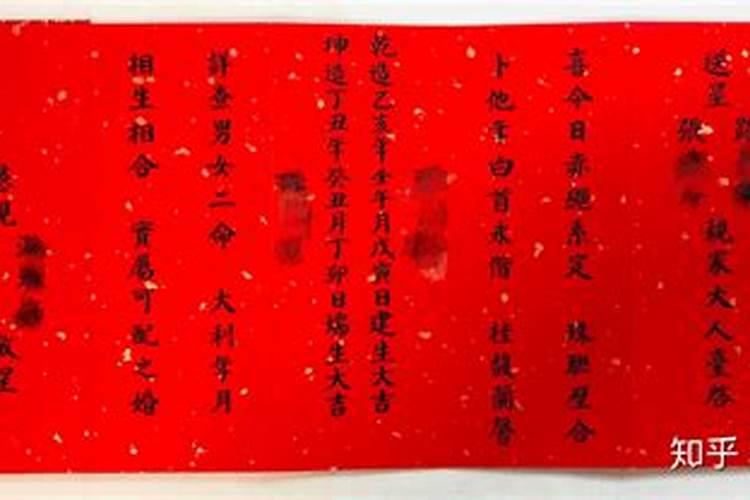 送呈
張
親家大人臺啓
喜今日赤繩系定 珠聯璧合
卜他年白首永偕 桂馥蘭馨
乾造乙亥年壬午月戊寅日建生大吉
坤造丁丑年癸丑月丁卯日瑞生大吉
詳查男女二命 大利年月
相生相合 實屬可配之婚
眷
知乎